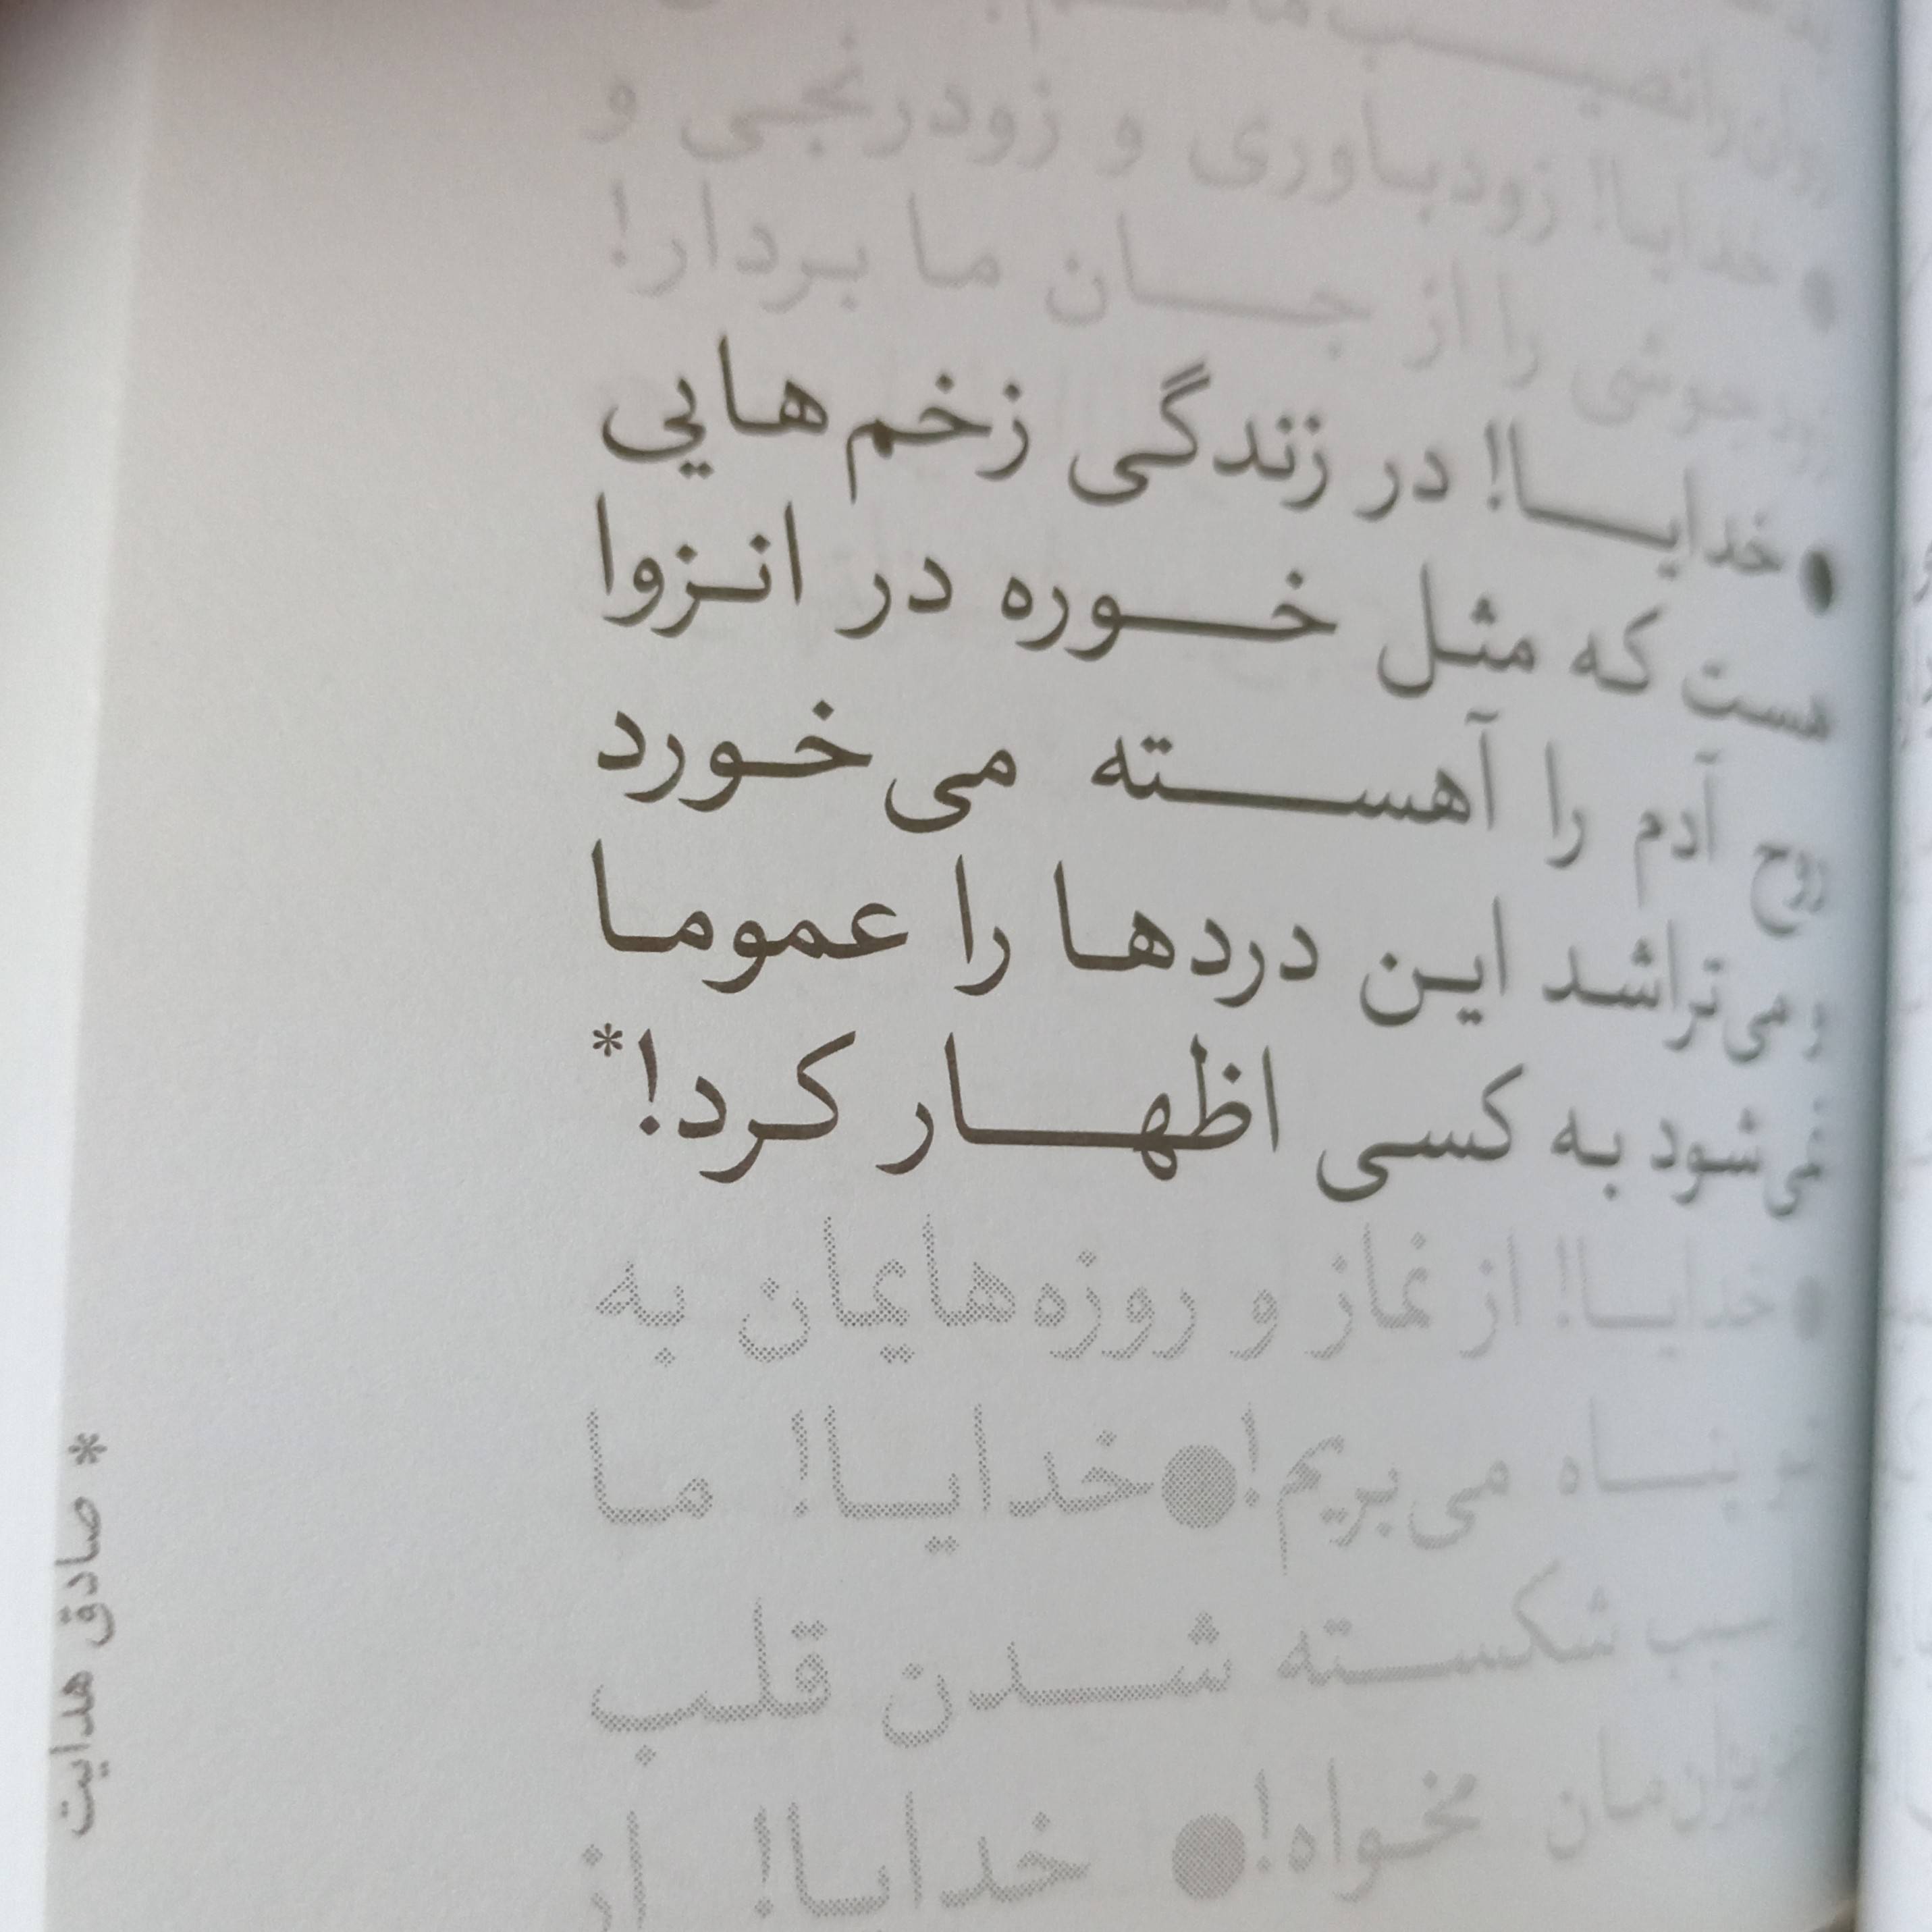 را نصیب ما
خدایا! زودباوری و زودرنجی و
زودجوشی را از جان ما بردار!
● خدایا! در زندگی زخم‌هایی
هست که مثل خوره در انزوا
روح آدم را آهسته می‌خورد
و می‌تراشد این دردها را عموما
نمی‌شود به کسی اظهار کرد!*
● خدایا! از نماز و روزه‌هایمان به
تو پناه می‌بریم!● خدایا! ما
سبب شکسته شدن قلب
عزیزان‌مان مخواه!● خدایا! از
* صادق هدایت